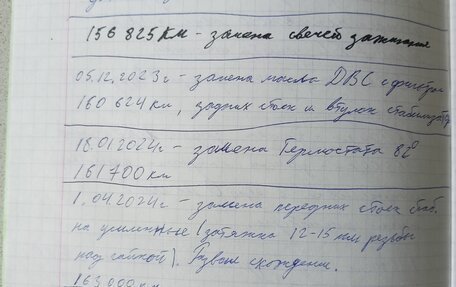 156 825 км - замена свечей зажигания
05.12.2023г - замена масла ДВС с фильтром
160 624 км, задних стоек и втулок стабилизатор
18.01.2024г - замена Термостата 82°
161 700 км
1.04.2024г - замена передних стоек стаб.
на усиленные (затяжка 12-15 мм резьбы
над гайкой). Развал схождение.
163 000 км